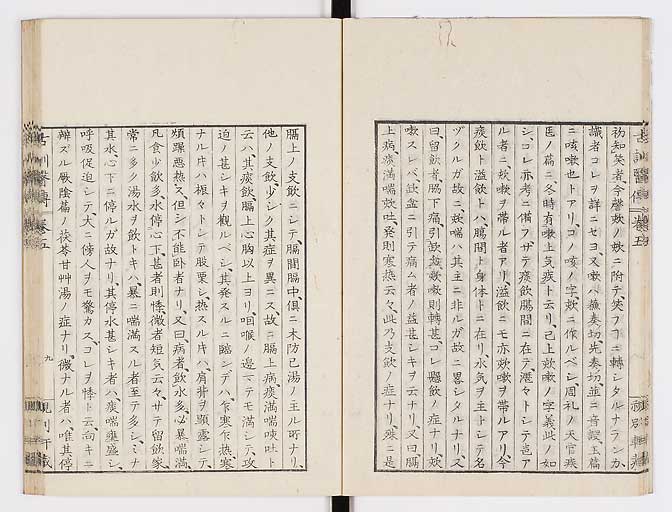 古訓醫傳 巻五
識者コレヲ詳ニセヨ、又嗽ハ蘇奏切、先奏切、並ニ音謏、玉篇
ニ咳嗽也トアリ、コノ咳ノ字、欬ニ作ルベシ、周礼ノ天官疾
医ノ篇ニ、冬時有嗽上気疾ト云リ、已上欬嗽ノ字義、此ノ如
シ、コレ亦考ニ備フ、サテ痰飲腸間ニ在テ瀝々トシテ声ア
ル者ニ、欬嗽ヲ帯ル者アリ、溢飲ニモ亦欬嗽ヲ帯ルアリ、今
痰飲ト溢飲トハ、腸間ト身体トニ在リ、水気ヲ主トシテ名
ヅクルガ故ニ、欬喘ハ其主ニ非ルガ故ニ畧シタルナリ、又
曰、留飲者、脇下痛引缺盆、欬嗽則轉甚、コレ懸飲ノ症ナリ、欬
嗽スレバ、缺盆ニ引テ痛ム者ノ益甚シキヲ云ナリ、又曰、膈
上病痰満喘欬吐、発則寒熱云々、此乃支飲ノ症ナリ、殊ニ是
膈上ノ支飲ニシテ、膈間膈中倶ニ木防已湯ノ主ル所ナリ、
他ノ支飲ト少シク其症ヲ異ニス、故ニ膈上病痰満喘咳吐ト
云ハ、其痰飲、膈上心胸以上ヨリ、咽喉ノ邊マデモ満シテ、攻
迫ノ甚シキヲ觀ルベシ、其発スルニ臨ンデハ、乍寒乍熱、寒
ナル片ハ振々トシテ股栗シ、熱スル片ハ、肩背ヲ顕露シテ、
煩躁悪熱ス、但シ不能卧者ナリ、又曰、病者、飲水多、必暴喘満、
凡食少飲多、水停心下、甚者則悸、微者短気云々、サテ留飲家、
常ニ多ク湯水ヲ飲トキハ、暴ニ喘満スル者至テ多シ、ミナ
其水、心下ニ停ルガ故ナリ、其停水甚シキ者ハ、痰喘壅盛シ、
呼吸促迫シテ、大ニ傍人ヲモ驚カス、コレヲ悸ト云、尚キニ
辨ズル厥陰篇ノ茯苓甘艸湯ノ症ナリ、微ナル者ハ、唯其停
古訓醫傳 巻五 九